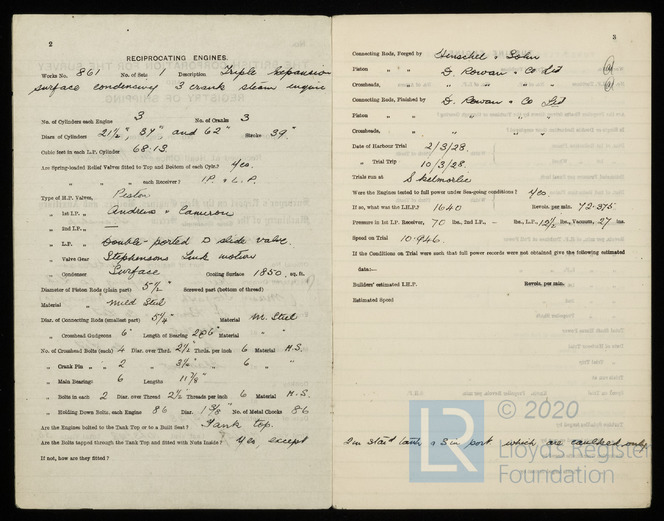 2
RECIPROCATING ENGINES.
Works No. 861 No. of Sets 1 Description Triple expansion
surface condensing 3 crank steam engine
No. of Cylinders each Engine 3 No. of Cranks 3
Diars. of Cylinders 21½", 37", and 62" Stroke 39"
Cubic feet in each L.P. Cylinder 68.13
Are Spring-loaded Relief Valves fitted to Top and Bottom of each Cylr.? Yes.
" " each Receiver? I.P. & L.P.
Type of H.P. Valves, Piston
" 1st I.P. " Andrews & Cameron
" 2nd I.P. " —
" L.P. " Double-ported D slide valve.
" Valve Gear Stephensons Link motion
" Condenser Surface Cooling Surface 1850 sq. ft.
Diameter of Piston Rods (plain part) 5½" Screwed part (bottom of thread)
Material " Mild Steel
Diar. of Connecting Rods (smallest part) 5¼" Material M. Steel
" Crosshead Gudgeons 6" Length of Bearing Material "
No. of Crosshead Bolts (each) 4 Diar. over Thrd. 2½" Thrds. per inch 6 Material M.S.
" Crank Pin " " 2 " 3½" " 6 " "
" Main Bearings 6 Lengths 11⅞"
" Bolts in each 2 Diar. over Thread 2½" Threads per inch 6 Material M.S.
" Holding Down Bolts, each Engine 86 Diar. 1⅜" No. of Metal Chocks 86
Are the Engines bolted to the Tank Top or to a Built Seat? Tank top.
Are the Bolts tapped through the Tank Top and fitted with Nuts Inside? Yes, except
If not, how are they fitted?
3
Connecting Rods, Forged by Henschel & Sohn
Piston " " D. Rowan & Co Ltd
Crossheads, " "
Connecting Rods, Finished by D. Rowan & Co Ltd
Piston " " "
Crossheads, " " "
Date of Harbour Trial 2/3/28.
" Trial Trip 10/3/28.
Trials run at Skelmorlie
Were the Engines tested to full power under Sea-going conditions? Yes
If so, what was the I.H.P.? 1640 Revols. per min. 72.375
Pressure in 1st I.P. Receiver, 70 lbs., 2nd I.P., lbs., L.P., 12½ lbs., Vacuum, 27 ins.
Speed on Trial 10.946.
If the Conditions on Trial were such that full power records were not obtained give the following estimated
data:—
Builders' estimated I.H.P. Revols. per min.
Estimated Speed
in stard tank & 3 in port which are caulked only.
LR © 2020
Lloyd's Register
Foundation